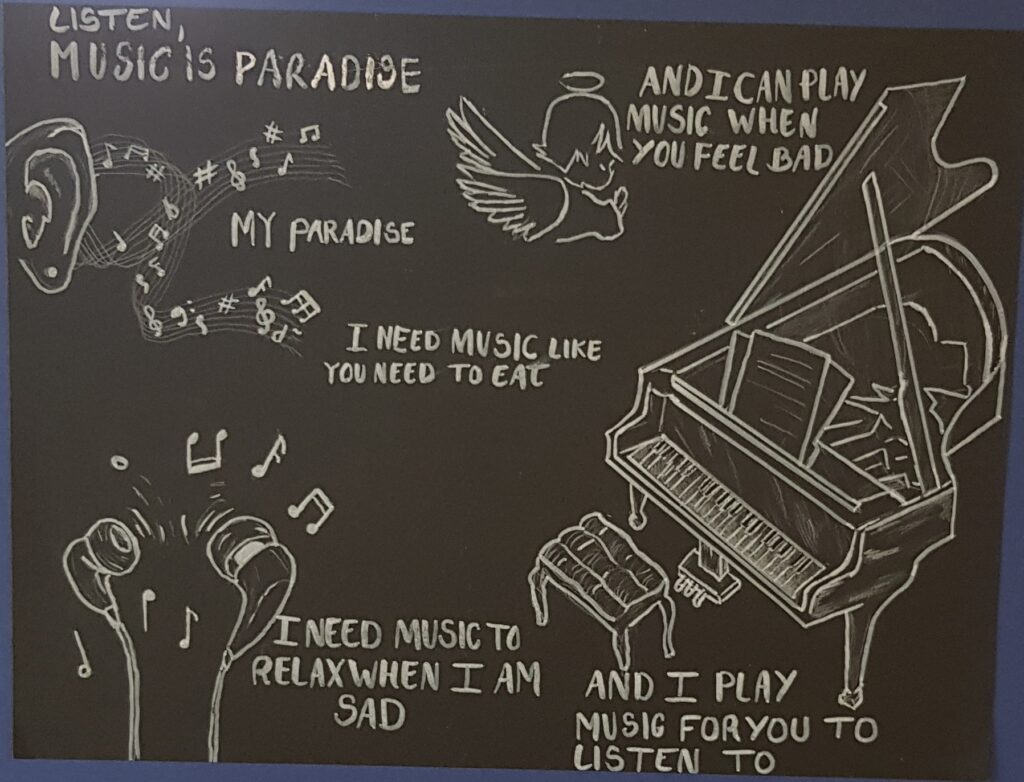 LISTEN,
MUSIC IS PARADISE
MY PARADISE
I NEED MUSIC LIKE
YOU NEED TO EAT
I NEED MUSIC TO
RELAX WHEN I AM
SAD
AND I CAN PLAY
MUSIC WHEN
YOU FEEL BAD
AND I PLAY
MUSIC FOR YOU TO
LISTEN TO